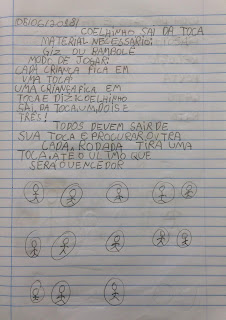 08/06/2018
COELHINHO SAI DA TOCA
MATERIAL NECESSÁRIO:
GIZ OU BAMBOLÊ
MODO DE JOGAR:
CADA CRIANÇA FICA EM
UMA TOCA
UMA CRIANÇA FICA EM
TOCA E DIZ: COELHINHO
SAI DA TOCA UM DOIS E
TRÊS!
TODOS DEVEM SAIR DE
SUA TOCA E PROCURAR OUTRA
CADA RODADA TIRA UMA
TOCA, ATÉ O ULTIMO QUE
SERÁ O VENCEDOR